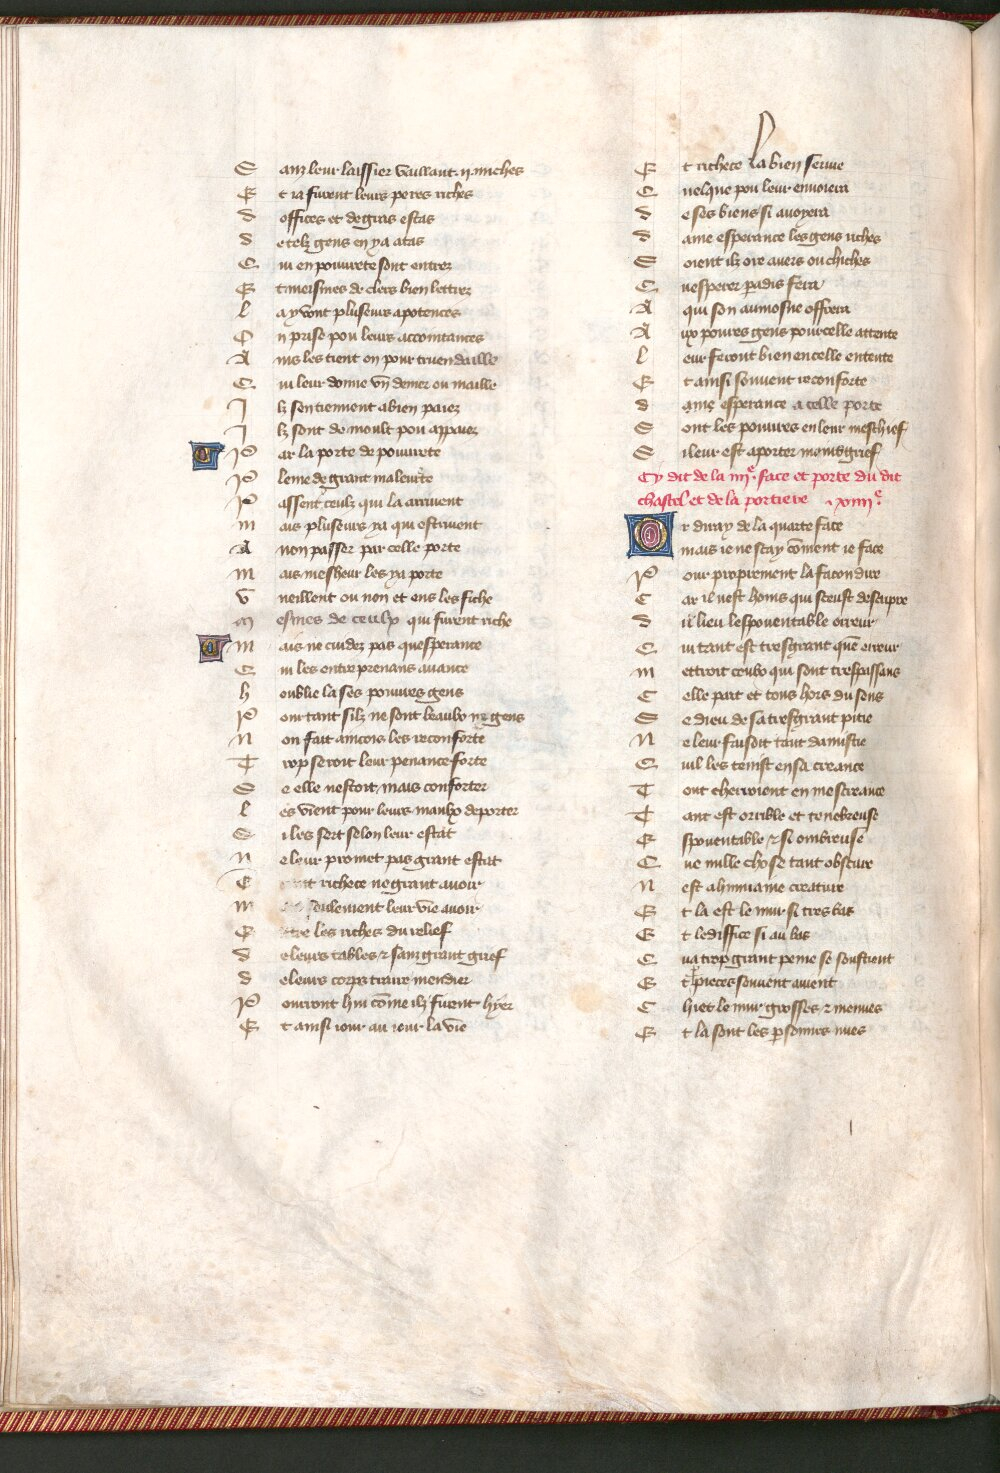 Sanz leur laissier vaillant .ii. miches
Et ia furent leurs peres riches
doffices et de gras estas
de telz gens en y a a tas
Qui en pouurete sont entrez
Et meismes de clers bien lettrez
la y vont pluseurs a potences
On prise pou leurs accointances
Ains les tient on pour truendaille
Qui leur donne vn denier ou maille
Jlz sen tiennent a bien paiez
Jlz sont de moult pou appaiez
Par la porte de pouurete
Pleine de grant maleurte
Passent ceulx qui la arriuent
mais pluseurs y a qui estriuent
A non passer par celle porte
mais mesheur les y a porte
Vueillent ou non et ens les fiche
mesmes de ceulx qui furent riche
mais ne cuidez pas quesperance
Qui les entreprenans auance
houblie la ses pouures gens
Pour tant silz ne sont beaulx ne gens
Non fait aincois les reconforte
Trop seroit leur penance forte
Se elle nestoit mais conforter
les vient pour leurs maulx deporter
Si les sert selon leur estat
ne leur promet pas grant estat
richece ne grant auoir
seulement leur vie auoir
les riches du relief
de leurs tables & sanz grant grief
de leurs corps traire mendier
Pourront hui comme ilz furent hyer
Et ainsi iour au iour la vie
Et richece la bien seruie
Quelque pou leur enuoiera
de ses biens si auoyera
dame esperance les gens riches
Soient ilz ore auers ou chiches
Quesperer paradis fera
A qui son aumosne offrera
Aux poures gens pour celle attente
leur feront bien en celle entente
Et ainsi souuent reconforte
dame esperance a celle porte
Sont les pouures en leur meschief
Si leur est a porter moins grief
Cy dit de la iiije. face et porte du dit
chastel et de la portiere .xiiije.
Or diray de la quarte face
mais ie ne scay comment ie face
Pour proprement la facon dire
Car il nest homs qui sceust descripre
du lieu lespouentable orreur
Qui tant est tresgrant quen erreur
mettroit ceulx qui sont trespassans
Celle part et tous hors du sens
Se dieu de sa tresgrant pitie
Ne leur faisoit tant damistie
Quil les tenist en sa creance
Tout cherroient en mescreance
Tant est orrible et tenebreuse
Espouentable & si ombreuse
Que nulle chose tant obscure
Nest a humaine creature
Et la est le mur si tres bas
Et ledifice si au bas
Qua trop grant peine se soustient
Et par pieces souuent auient
Chiet le mur grosses & menues
Et la sont les personnes nues